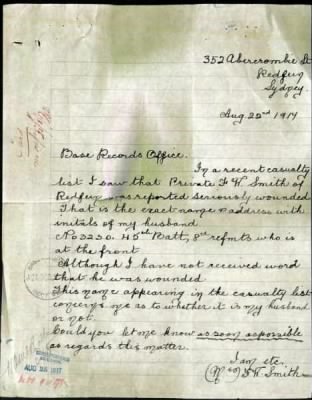 352 Abercrombie St
Redfern
Sydney
Aug. 22nd 1917
Base Records Office.
In a recent casualty
list I saw that Private F W. Smith of
Redfern was reported seriously wounded
That is the exact name & address with
initials of my husband
No 3230. 45th Batt, 8th refmts who is
at the front
Although I have not received word
that he was wounded
This name appearing in the casualty list
concerns me as to whether it is my husband
or not.
Could you let me know as soon as possible
as regards this matter.
I am etc.
(Mrs) F W. Smith
AUG 25 1917